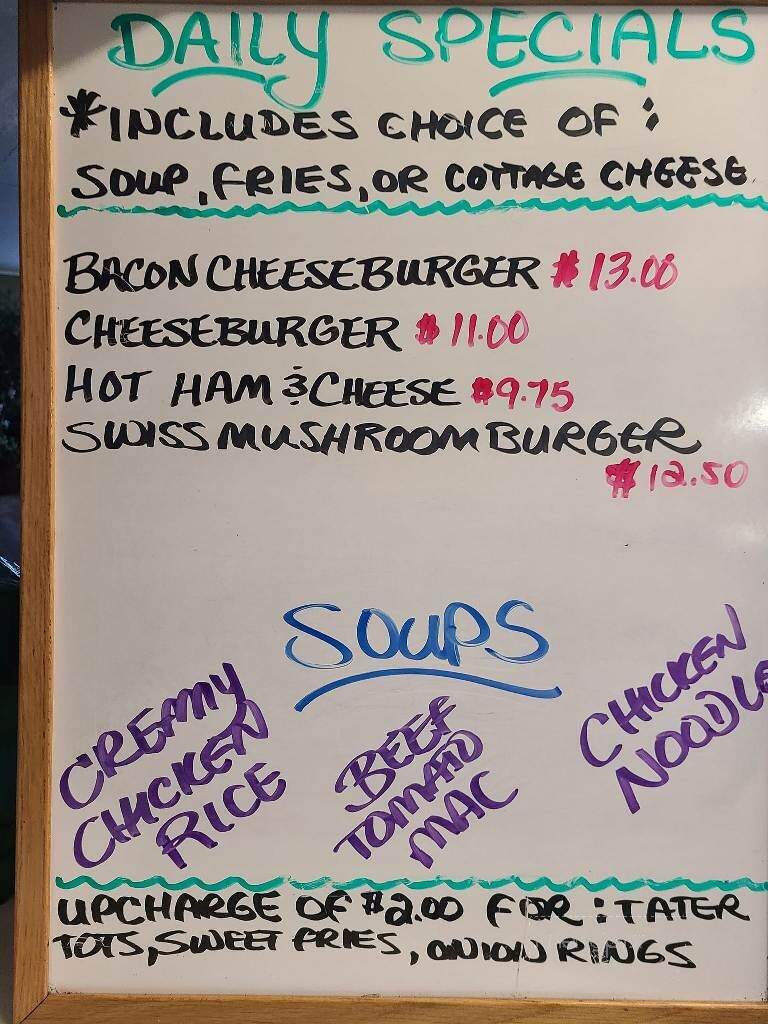 DAILY SPECIALS
*INCLUDES CHOICE OF:
SOUP, FRIES, OR COTTAGE CHEESE
BACON CHEESEBURGER $13.00
CHEESEBURGER $11.00
HOT HAM & CHEESE $9.75
SWISS MUSHROOM BURGER
$12.50
SOUPS
CREAMY
CHICKEN
RICE
BEEF
TOMATO
MAC
CHICKEN
NOODLE
UPCHARGE OF $2.00 FOR: TATER
TOTS, SWEET FRIES, ONION RINGS